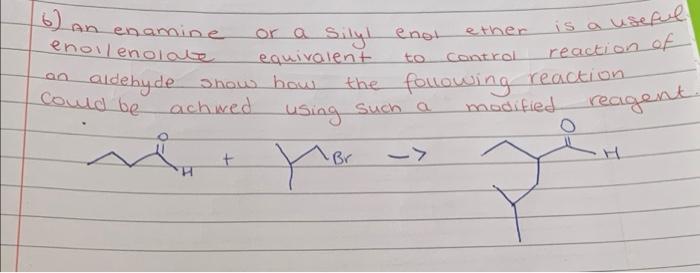 6) An enamine or a silyl enol ether is a useful
enol/enolate equivalent to control reaction of
an aldehyde show how the following reaction
could be achived using such a modified reagent.
O H + Br -> O H